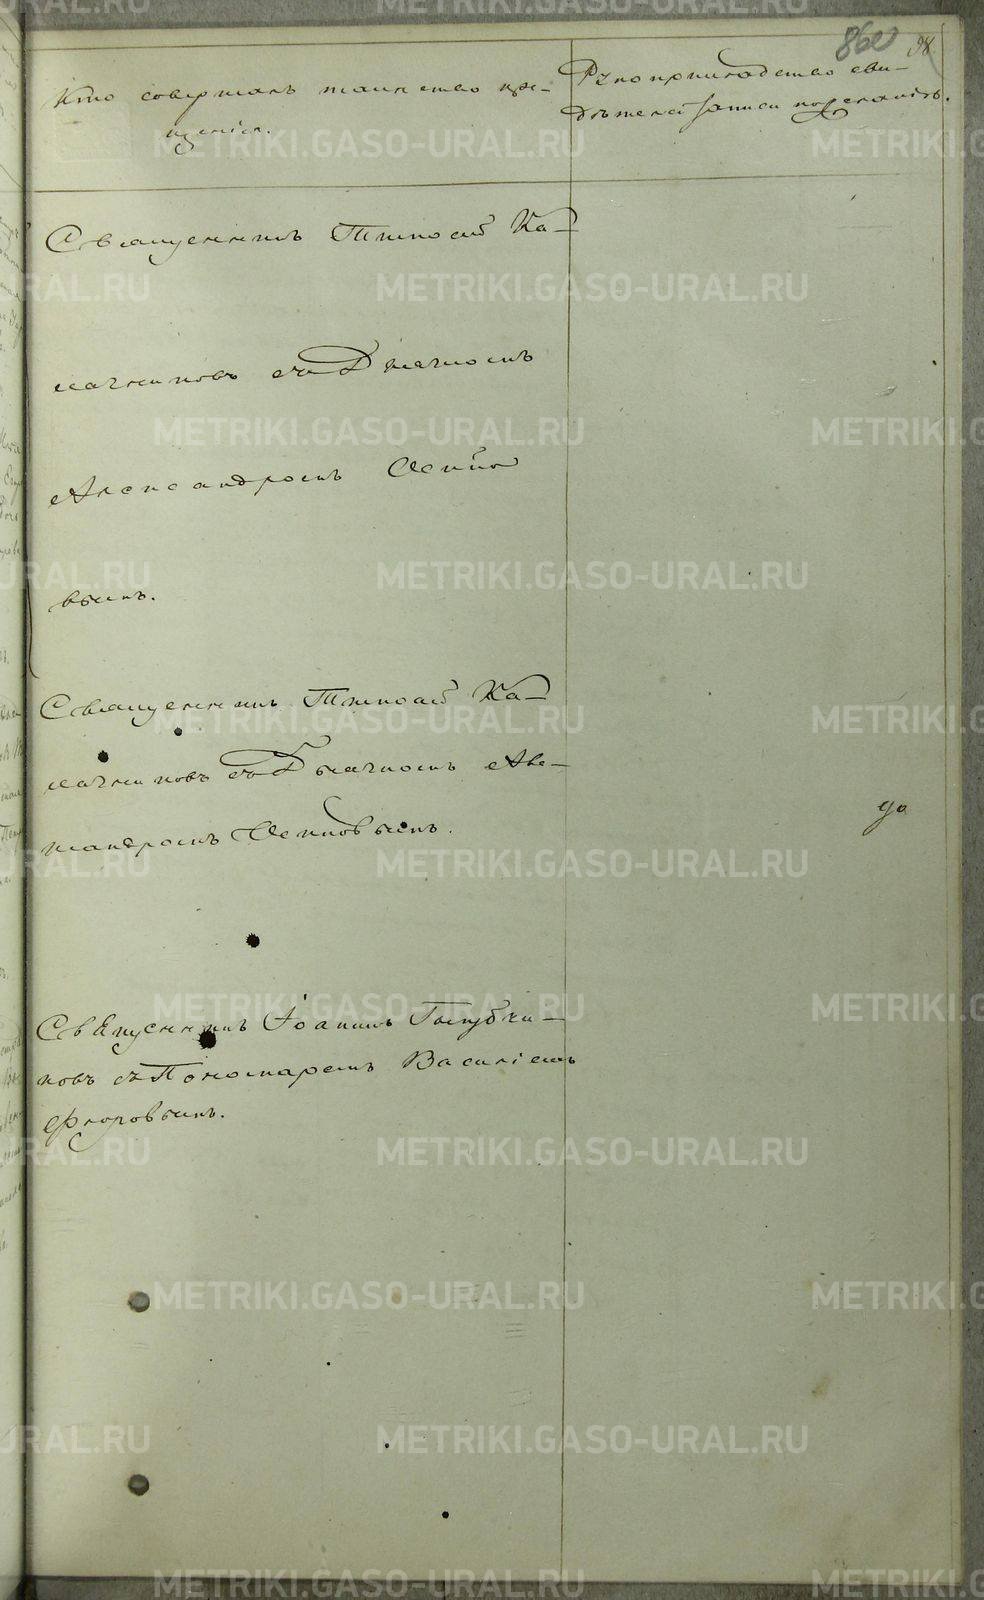 98
Кто совершалъ таинство кре-
щенія.
Рукоприкладство сви-
дѣтелей записи по желанію.
Священникъ Тимофей Ка-
лачниковъ съ Дьячкомъ
Александромъ Осипо
вымъ.
Священникъ Тимофей Ка-
лачниковъ съ Дьячкомъ Алек-
сандромъ Осиповымъ.
Священникъ Іоаннъ Голубчи-
ковъ съ Пономаремъ Василіемъ
Флоровымъ.
METRIKI.GASO-URAL.RU